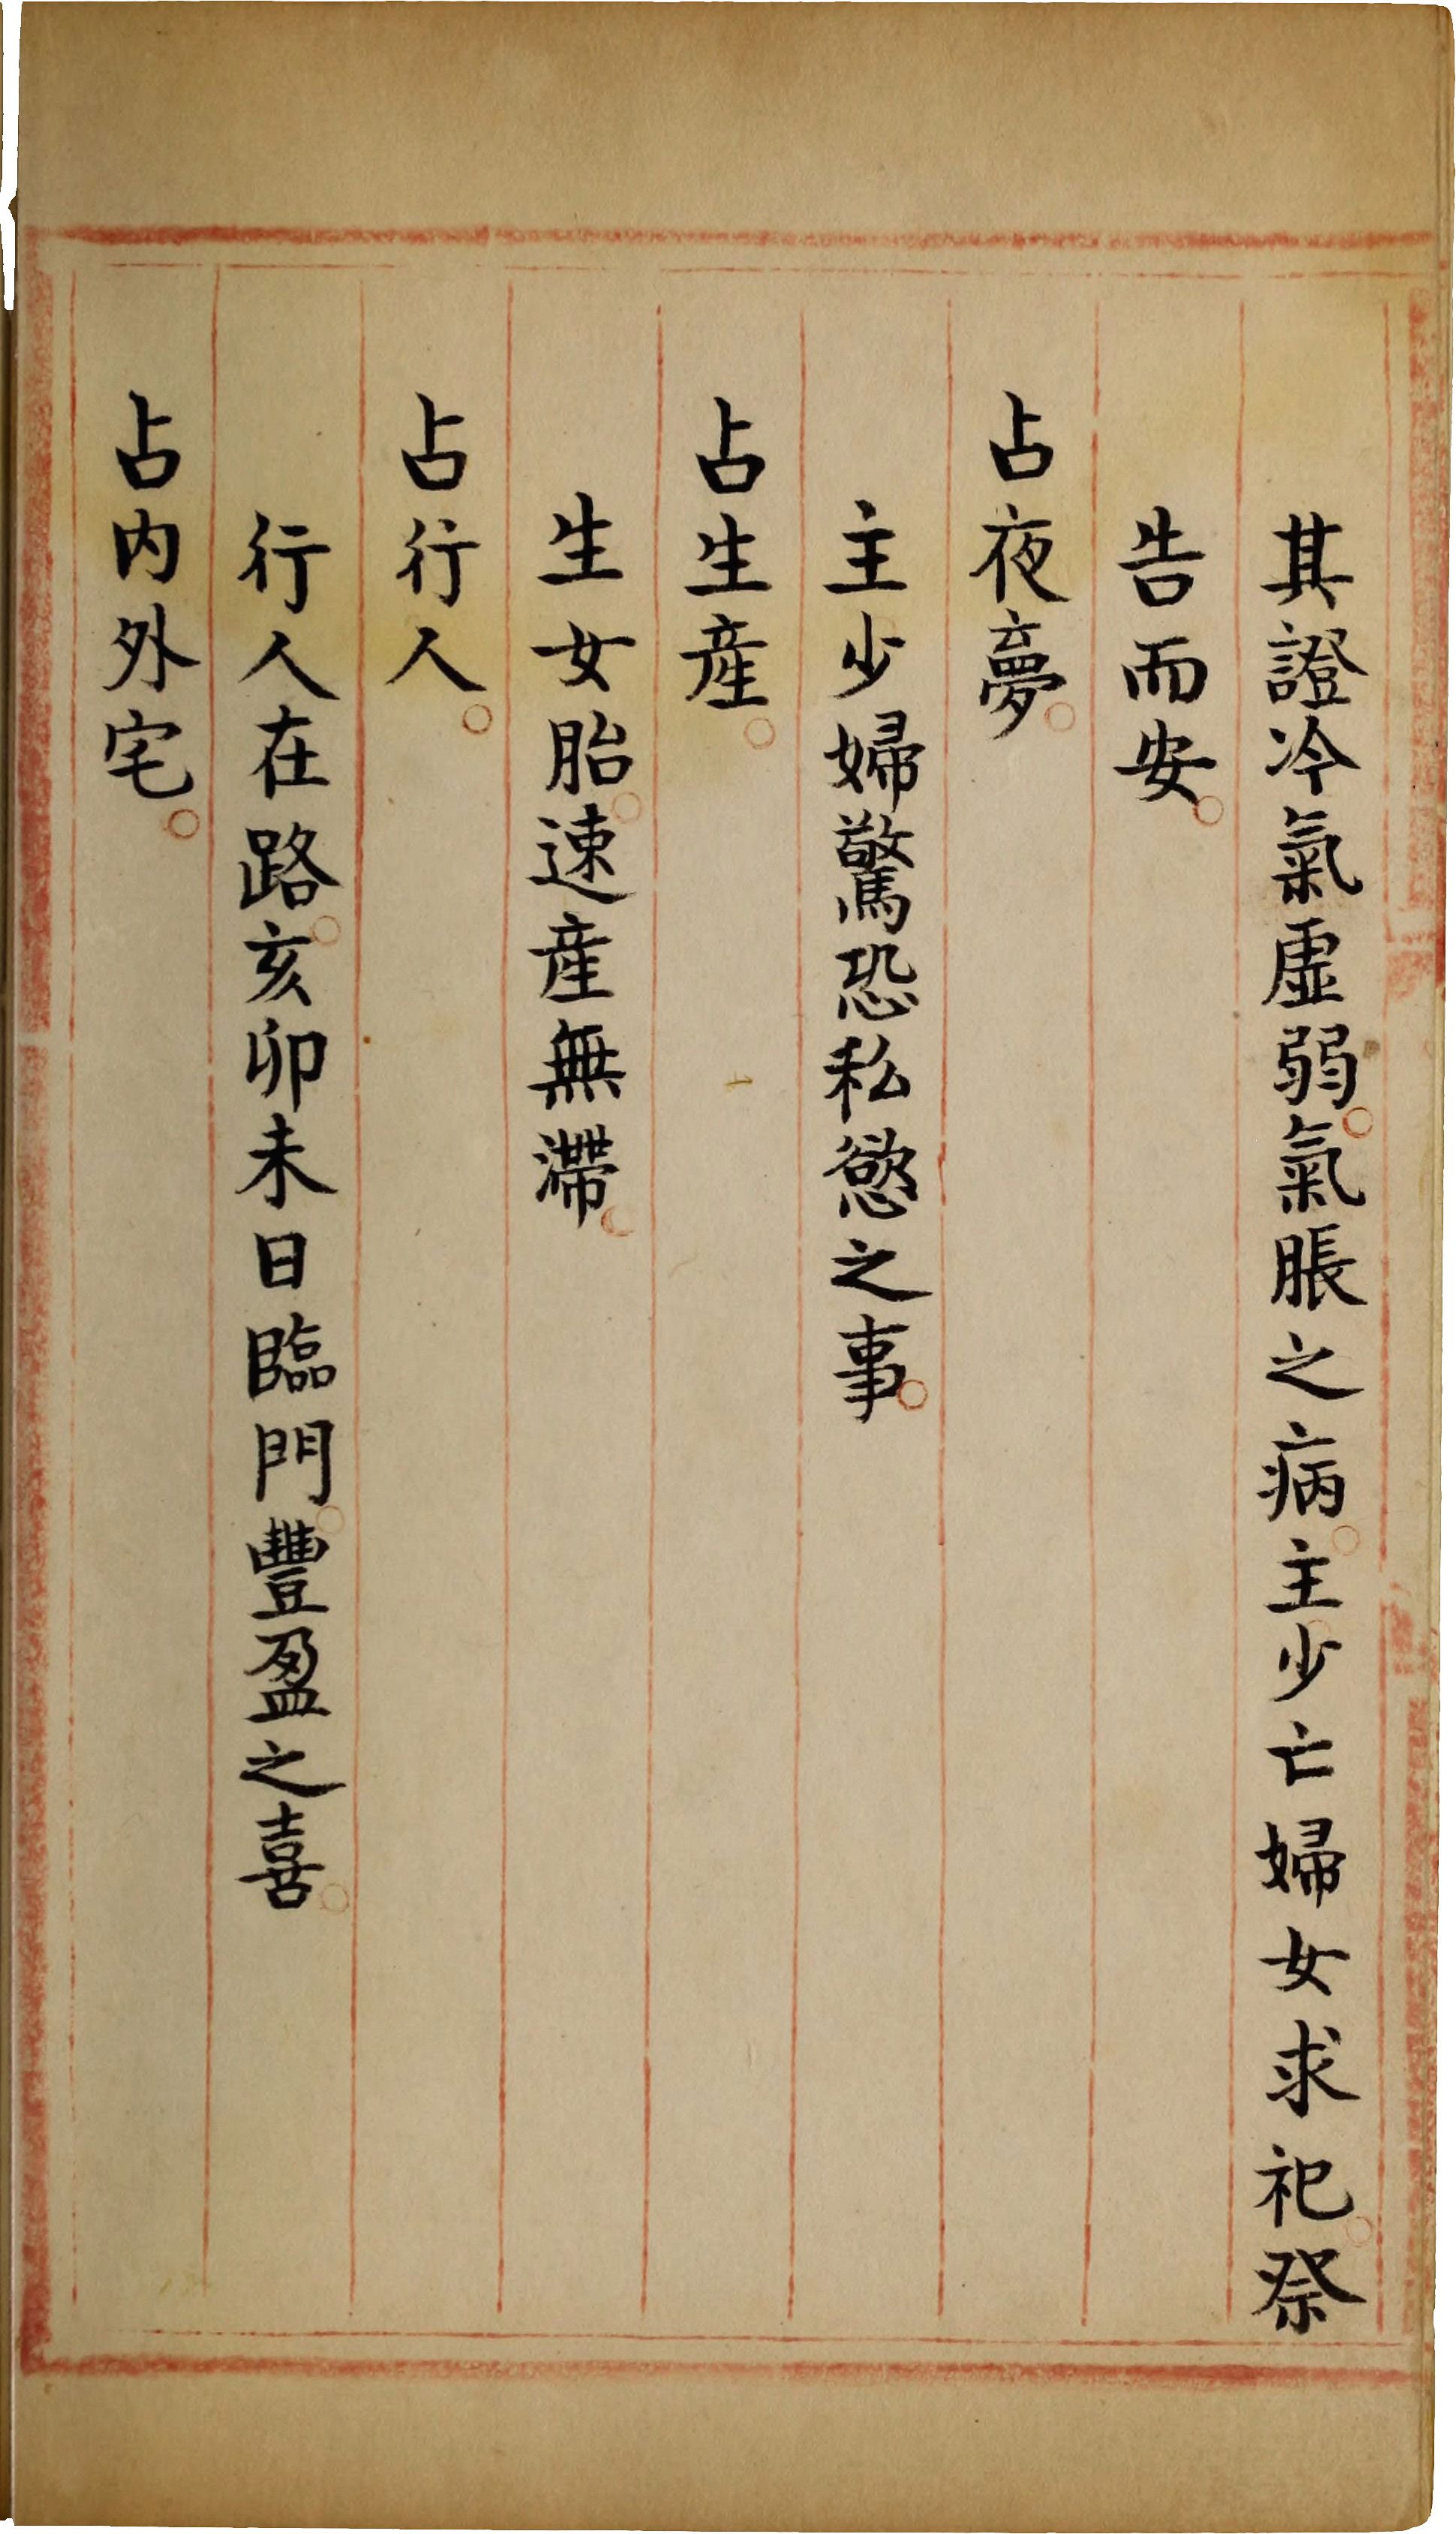 其證冷氣虛弱。氣脹之病。主少亡婦女求祀。祭
告而安。
占夜夢。
主少婦驚恐私慾之事。
占生產。
生女胎。速產無滯。
占行人。
行人在路。亥卯未日臨門。豐盈之喜。
占內外宅。